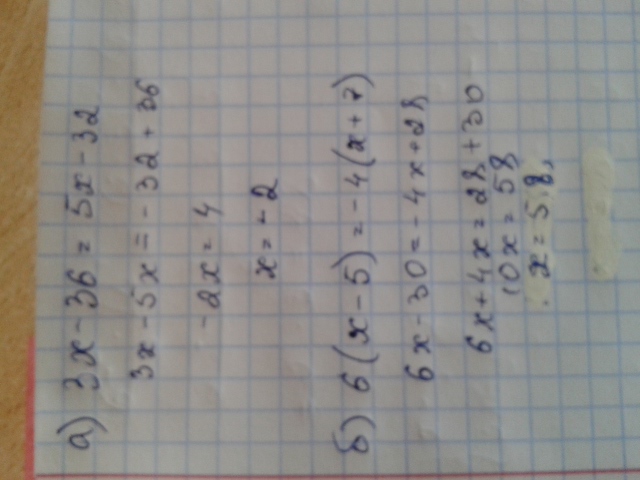 а) 3x - 36 = 5x - 32
3x - 5x = - 32 + 36
- 2x = 4
x = - 2
б) 6(x - 5) = - 4(x + 7)
6x - 30 = - 4x + 28
6x + 4x = 28 + 30
10x = 58
x = 5,8,